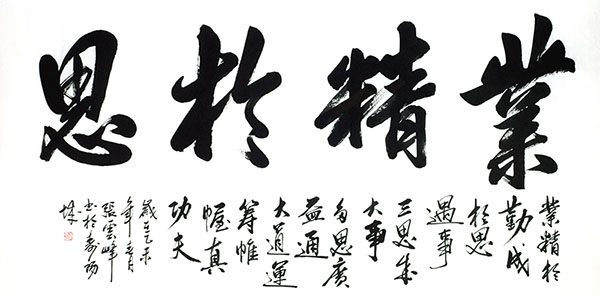 業精於思
業精於
勤成
於思
遇事
三思
大事
多思廣
益通
大道運
籌帷
幄真
功夫
歲在乙未
年月
張雲峰
書於